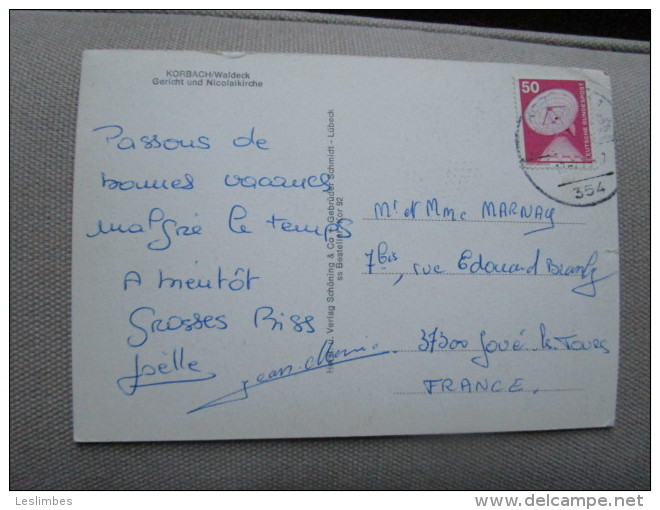 KORBACH/Waldeck
Gericht und Nicolaikirche
Passons de
bonnes vacances
malgré le temps
A bientôt
Grosses Biss
Joëlle
Jean-Marie
Verlag Schöning & Co Gebrüder Schmidt - Lübeck
Kor 92
50
DEUTSCHE BUNDESPOST
354
Mr et Mme MARNAY
7 bis, rue Edouard Branly
37300 Joué les Tours
FRANCE.
Leslimbes
delcampe.net